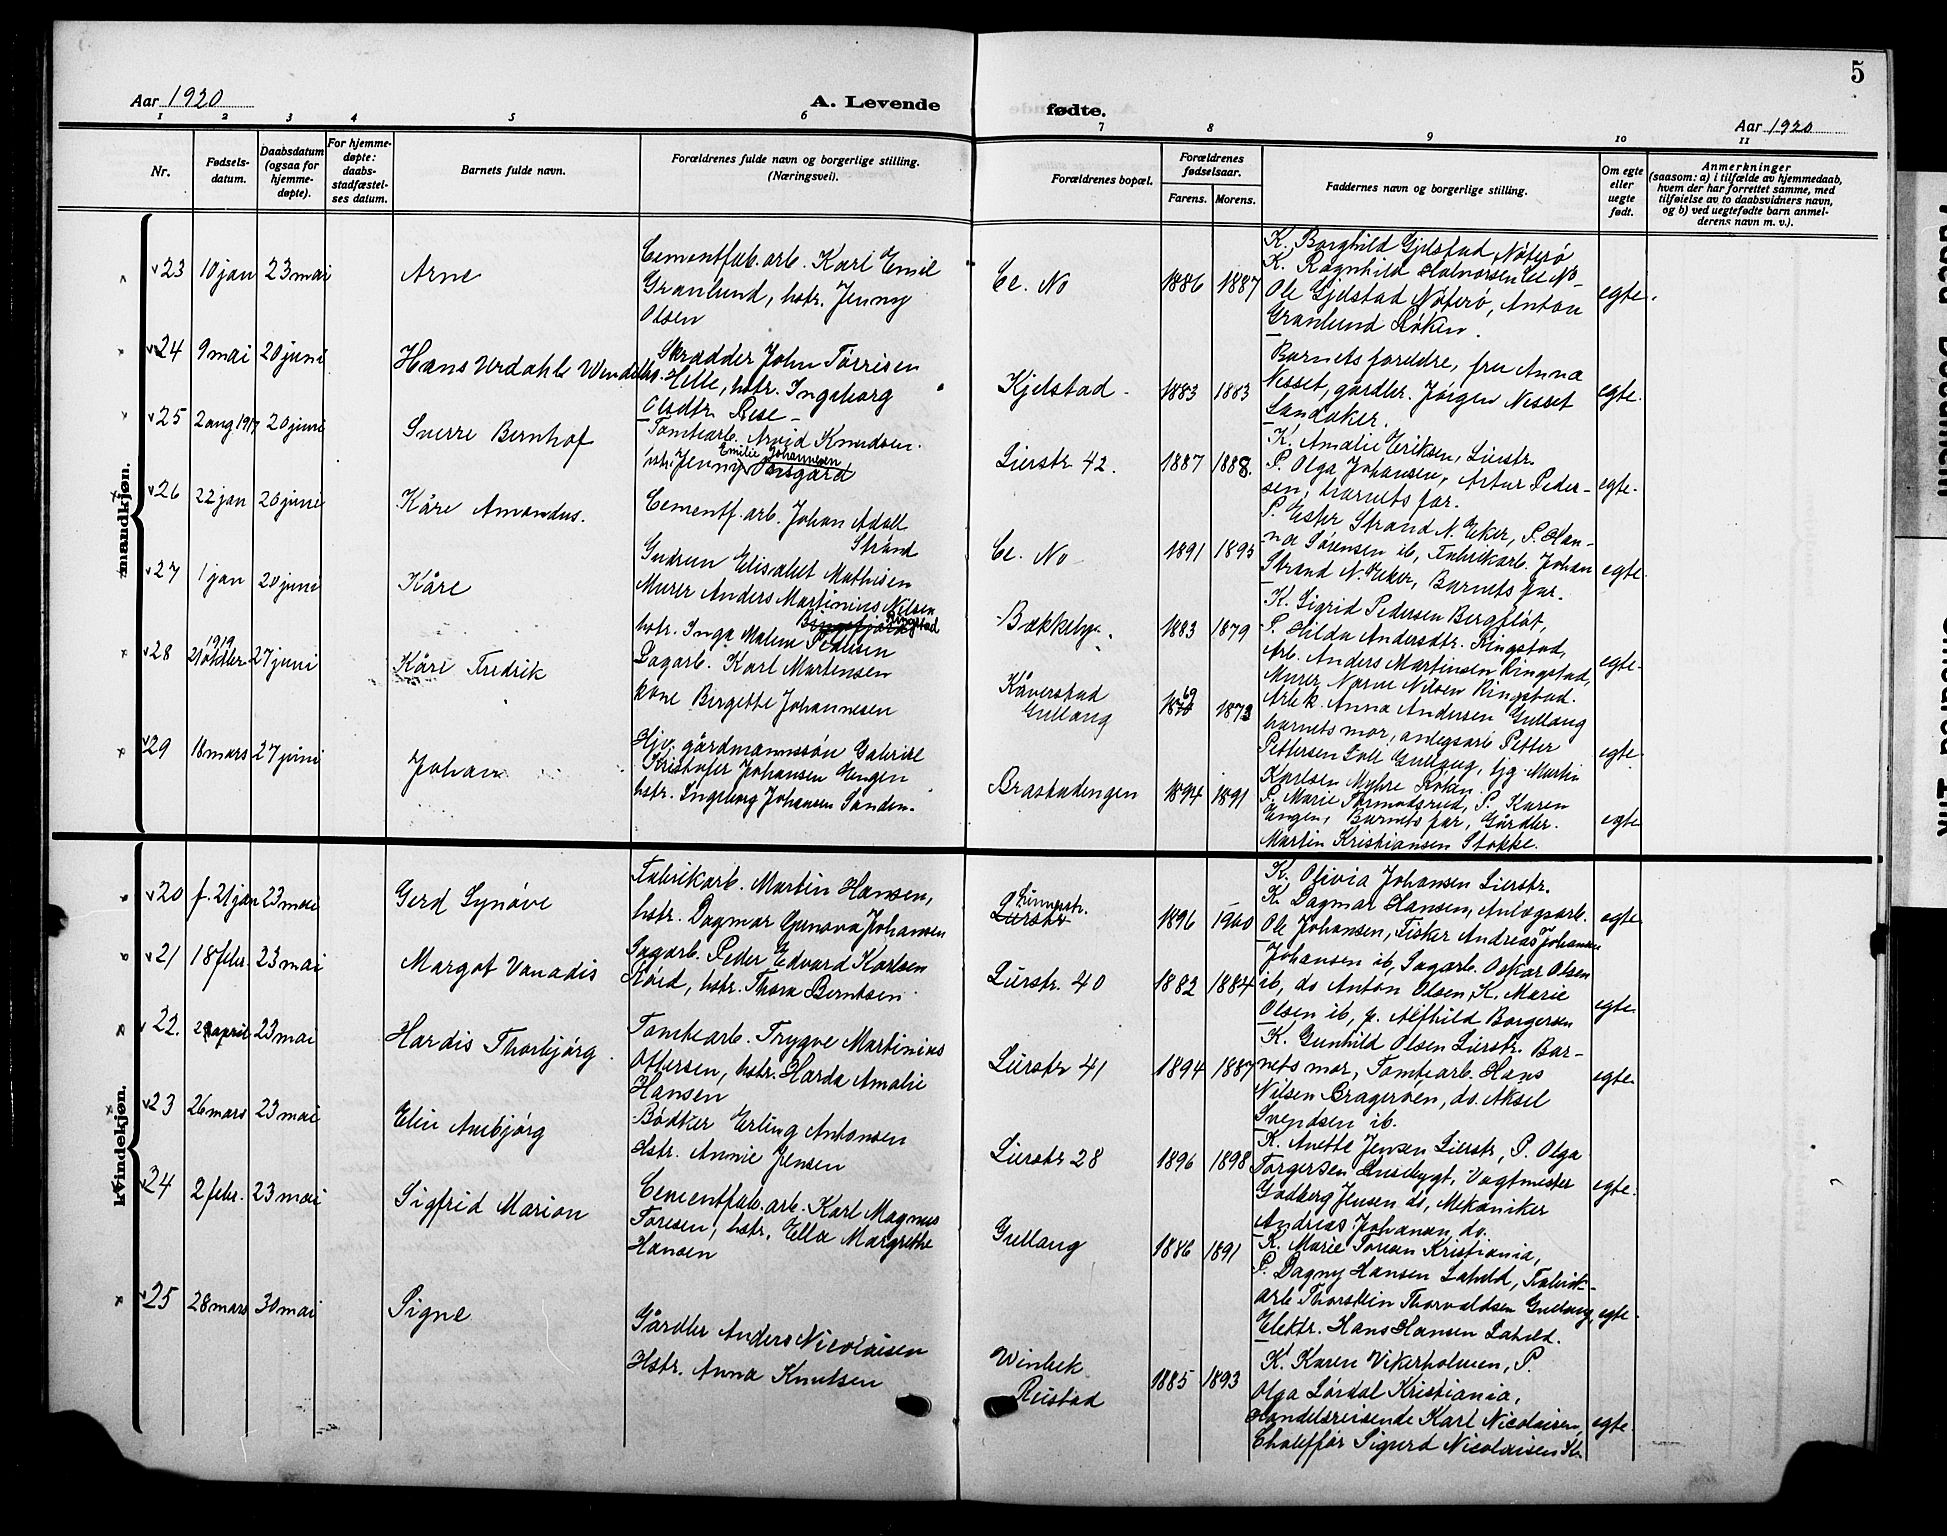 5
Aar 1920
A. Levende fødte.
Aar 1920
1 2 3 4 5 6 7 8 9 10 11
Nr.
Fødsels-
datum.
Daabsdatum
(ogsaa for
hjemme-
døpte).
For hjemme-
døpte:
daabs-
stadfæstel-
ses datum.
Barnets fulde navn.
Forældrenes fulde navn og borgerlige stilling.
(Næringsvei).
Forældrenes bopæl.
Forældrenes
fødselsaar.
Farens. Morens.
Faddernes navn og borgerlige stilling.
Om egte
eller
uegte
født.
Anmerkninger
(saasom: a) i tilfælde av hjemmedaab,
hvem der har forrettet samme, med
tilføielse av to daabsvidners navn,
og b) ved uegtefødte barn anmel-
derens navn m. v.).
mandkjøn.
23 10 jan 23 mai
Arne
Cementfab. arb. Karl Emil
Granlund, hstr. Jenny
Olsen
Ce. No
1886 1887
K. Borghild Gjelstad Nøterø
K. Ragnhild Halvorsen Ce No
Ole Gjelstad Nøterø, Anton
Granlund Røken.
egte.
24 9 mai 20 juni
Hans Urdahl
Skrædder John Torrisen
Helle, hstr. Ingeborg
Olsdtr. Rese
Kjelstad
1883 1883
Barnets foreldre, fru Anna
Nesset, gårdbr. Jørgen Nesset
Landaker.
egte.
25 2 aug 1917 20 juni
Sverre Bernhof
Tomtearb. Arvid Knudsen.
hstr. Jenny Emilie Johannesen
Lierstr. 42.
1887 1888.
K. Amalie Eriksen, Lierstr.
P. Olga Johansen, Artur Peder-
sen, barnets far.
egte.
26 22 jan 20 juni
Kåre Amandus.
Cementf. arb. Johan Adolf
Strand
Gudrun Elisabet Mathisen
Ce. No
1891 1895
P. Ester Strand N. Eker, P. Han-
na Sørensen ib, Fabrikarb. Johan
Strand N. Eker, Barnets far.
egte.
27 1 jan 20 juni
Kåre
Murer Anders Martinius Nilsen
Ringstad
hstr. Inga Malene Pedersen
Bækkeby
1883 1879
K. Sigrid Pedersen Bergfløt,
P. Hilda Andersdtr. Ringstad,
Arb. Anders Martinsen Ringstad,
Murer Narve Nilsen Ringstad.
egte.
28 1919 21 oktbr. 27 juni
Kåre Fredrik
Dagarb. Karl Martensen
kone Birgette Johannesen
Kåverstad
Gullaug
1869 1873
Arb. k. Anna Andersen Gullaug
barnets mor, anlegsarb Petter
Pettersen Gullaug, ljg. Martin
Karlsen Myhre Røken.
egte.
29 18 mars 27 juni
Johan
Hjv. gårdmannssøn Gabriel
Kristofer Johansen Engen
hstr. Ingeborg Johansen Sanden.
Brastadengen
1894 1891
P. Marie Tormodsrud, P. Karen
Engen, Barnets far, Gårdbr.
Martin Kristiansen Stokke.
egte
kvindekjøn.
20 f. 21 jan 23 mai
Gerd Synøve
Fabrikarb. Martin Hansen,
hstr. Dagmar Gunova Johansen
Lierstr
1896 1900
K. Olivia Johansen Lierstr.
K. Dagmar Hansen, Anlægsarb.
Ole Johansen, Fisker Andreas Johansen
egte
21 18 febr. 23 mai
Margot Vanadis
Sagarb. Peder Edvard Karlsen
Røed, hstr. Thora Berntsen
Lierstr. 40
1882 1884
Johansen ib, Sagarb. Oskar Olsen
ib, do Anton Olsen, K. Marie
Olsen ib, p. Alfhild Borgersen
egte
22. april 23 mai
Hardis Thorbjørg
Tomtearb. Trygve Martinius
Ottersen, hstr. Harda Amalie
Hansen
Lierstr 41
1894 1887
K. Gunhild Olsen Lierstr. Bar-
nets mor, Tomtearb. Hans
Nilsen Bragerøen, do. Aksel
Svendsen ib.
egte
23 26 mars 23 mai
Elin Aasbjørg
Bødker Erling Antonsen
Hstr. Annie Jensen
Lierstr 28
1896 1898
K. Anette Jensen Lierstr, P. Olga
Torgersen Husebygt, Vagtmester
Godberg Jensen do, Mekaniker
Andreas Johansen do.
egte.
24 2 febr. 23 mai
Sigfrid Marion
Cementfab. arb. Karl Magnus
Toresen, hstr. Ella Margrethe
Hansen
Gullaug
1886 1891
K. Marie Toresen Kristiania,
P. Dagny Hansen Lahell, Fabrik-
arb Thorstein Thorvaldsen Gullaug,
Elektr. Hans Hansen Lahell.
egte.
25 28 mars 30 mai
Signe
Gårdbr Anders Nicolaisen
Hstr. Anna Knutsen
Winbek
Reistad
1885 1893
K. Karen Vikerholmen, P.
Olga Lørdal Kristiania,
Handelsreisende Karl Nicolaisen,
Chauffør Sigurd Nicolaisen Kr.
egte.